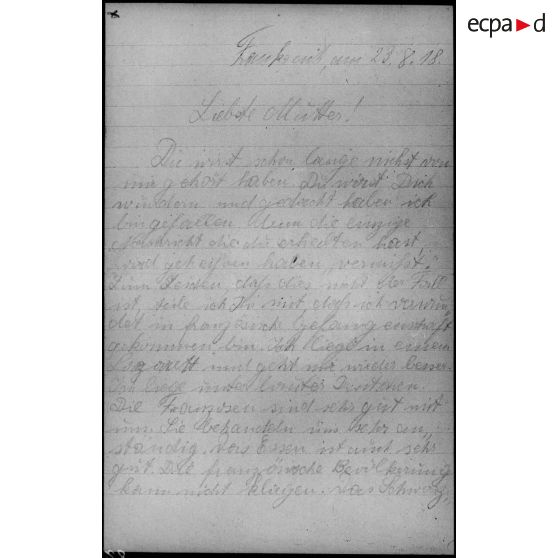 ecpad
Frankreich, am 23.8.18.
Liebste Mutter!
Du wirst schon lange nichst von
mir gehört haben. Du wirst Dich
wundern und gedacht haben ich
bin gefallen denn die einzige
Nachricht die du erhalten hast,
wird geheißen haben „vermißt“.
Zum, daß dies nicht der Fall
ist, teile ich Dir mit daß ich verwun
det in französische gefangenschaft
gekommen bin. Ich liege in einem
Lazarett und geht mir wieder besser.
Ich liege unter lauter Deutschen.
Die Franzosen sind sehr gut mit
uns. Sie behandeln uns sehr an,
ständig. das Essen ist auch sehr
gut. Die französische Bevölkerung
kann nicht klagen. das